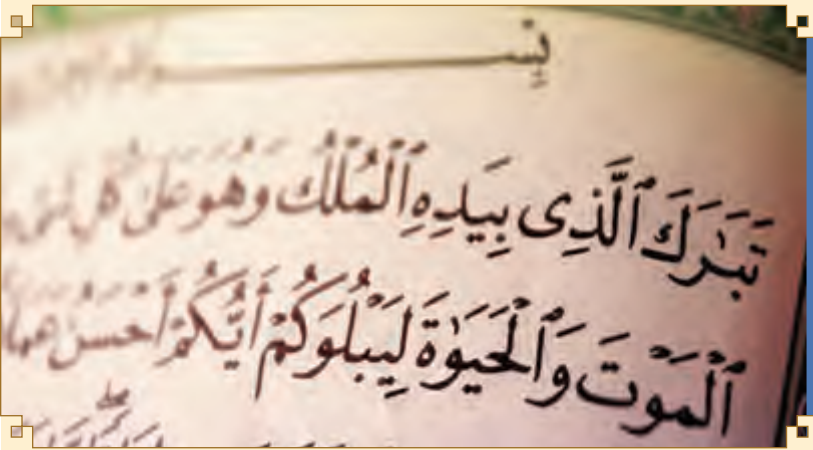 بِسْ
تَبَٰرَكَ ٱلَّذِى بِيَدِهِ ٱلْمُلْكُ وَهُوَ عَلَىٰ كُلِّ
ٱلْمَوْتَ وَٱلْحَيَوٰةَ لِيَبْلُوَكُمْ أَيُّكُمْ أَحْسَنُ